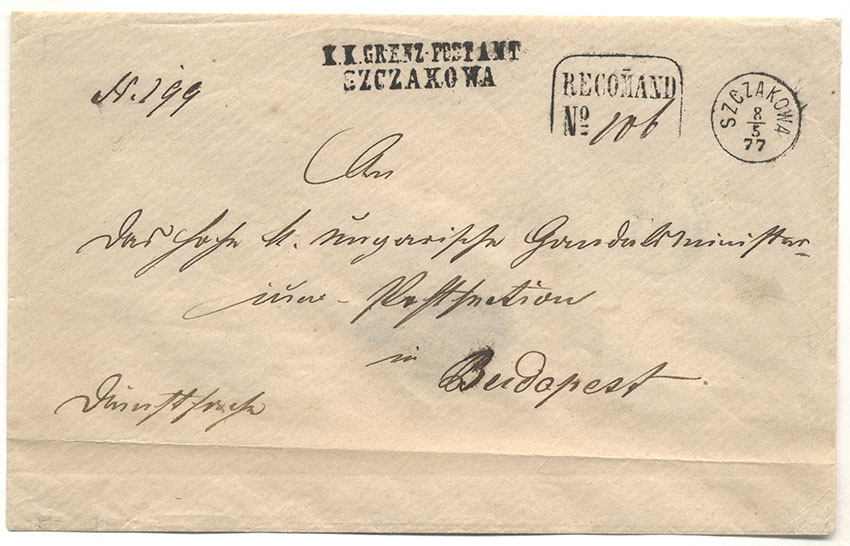 K.K.GRENZ-POSTAMT
SZCZAKOWA
N. 199
RECOM̄AND
No 106
SZCZAKOWA
8
5
77
An
das hohe k. ungarische Handelsminister-
ium - Postsection
in Budapest.
Dienstsache